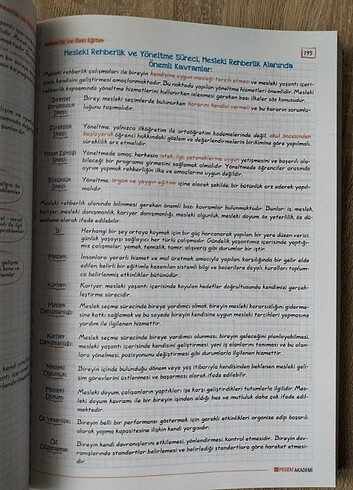 Rehberlik ve Özel Eğitim
195
Mesleki Rehberlik ve Yöneltme Süreci, Mesleki Rehberlik Alanında
Önemli Kavramlar:
Mesleki rehberlik çalışmaları ile bireyin kendisine uygun mesleği tercih etmesi ve mesleki yaşantı içeri-
sinde kendisini geliştirmesi amaçlanmaktadır. Bu noktada yapılan yöneltme hizmetleri önemlidir. Mesleki
rehberlik kapsamında yöneltme hizmetlerini kullanırken izlenmesi gereken bazı ilkeler söz konusudur.
Bireysel
Sorumluluk
İlkesi:
Birey, mesleki seçimlerde bulunurken kararını kendisi vermeli ve bu kararın sorumlu-
luğunu taşımalıdır.
Süreklilik
İlkesi:
Yöneltme, yalnızca ilköğretim ile ortaöğretim kademelerinde değil, okul öncesinden
başlayarak öğrenci hakkındaki gözlem ve değerlendirmelerin birikimine göre yapılmalı,
süreklilik arz etmelidir.
Fırsat Eşitliği
İlkesi:
Yöneltmede amaç herkesin istek, ilgi, yeteneklerine uygun yetişmesini ve başarılı ola-
bileceği bir programa girmesini sağlamak olmalıdır. Yöneltmede öğrenciler arasında
ayrım yapmak rehberliğin ilke ve amaçlarına uygun değildir.
Bütünlük
İlkesi:
Yöneltme, örgün ve yaygın eğitimi içine alacak şekilde, bir bütünlük arz ederek yapıl-
malıdır.
Mesleki rehberlik alanında bilinmesi gereken önemli bazı kavramlar bulunmaktadır. Bunlar; iş, meslek,
kariyer, meslek danışmanlığı, kariyer danışmanlığı, mesleki olgunluk, mesleki doyum, öz yeterlilik, öz dü-
zenleme olarak ifade edilebilir.
İş:
Herhangi bir şey ortaya koymak için bir güç harcanarak yapılan bir yere düzen verici,
günlük yaşayışı sağlayan her türlü çalışmadır. Gündelik yaşantımız içerisinde yaptığı-
mız çalışmalar; yemek, temizlik, tamir, alışveriş gibi durumlar bir iştir.
Meslek:
İnsanlara yararlı hizmet ve mal üretmek amacıyla yapılan, karşılığında bir gelir elde
edilen, belirli bir eğitimle kazanılan sistemli bilgi ve becerilere dayalı, kuralları toplum-
ca belirlenmiş etkinlikler bütünüdür.
Kariyer:
Kariyer, mesleki yaşantı içerisinde koyulan hedefler doğrultusunda kendimizi gerçek-
leştirme sürecidir.
Meslek
Danışmanlığı:
Meslek seçme sürecinde bireye yardımcı olmak, bireyin mesleki kararsızlığını giderme-
sine katkı sağlamak ve bu sayede bireyin kendisine uygun mesleki tercihleri yapmasına
yardım ile ilgilenen hizmettir.
Kariyer
Danışmanlığı:
Meslek seçme sürecinde bireye yardımcı olunması, bireyin geleceğini planlayabilmesi,
mesleki yaşantı içerisinde kendisini geliştirmesi, yeni iş alanlarını tanıması ve bu alan-
lara yönelmesi, pozisyonunu değiştirmesi gibi durumlarla ilgilenen hizmettir.
Mesleki
Olgunluk:
Bireyin içinde bulunduğu dönem veya yaş itibariyle kendisinden beklenen mesleki geli-
şim görevlerini üstlenmesi ve başarması olarak ifade edilebilir.
Mesleki
Doyum:
Mesleki doyum, çalışanların yaptıkları işe karşı geliştirdikleri tutumlarla ilgilidir. Mes-
leki doyum kavramı ile bir bireyin işinden aldığı haz ve mutluluk daha çok ifade edil-
mektedir.
Öz Yeterlilik:
Bireyin belli bir performansı göstermek için gerekli etkinlikleri organize edip başarılı
olarak yapma kapasitesine ilişkin kendi yargısıdır.
Öz
Düzenleme:
Bireyin kendi davranışlarını etkilemesi, yönlendirmesi, kontrol etmesidir. Bireyin dav-
ranışlarında standartlar belirlemesi ve belirlediği standartlara göre hareket etmesi-
dir.
PEGEM AKADEMİ